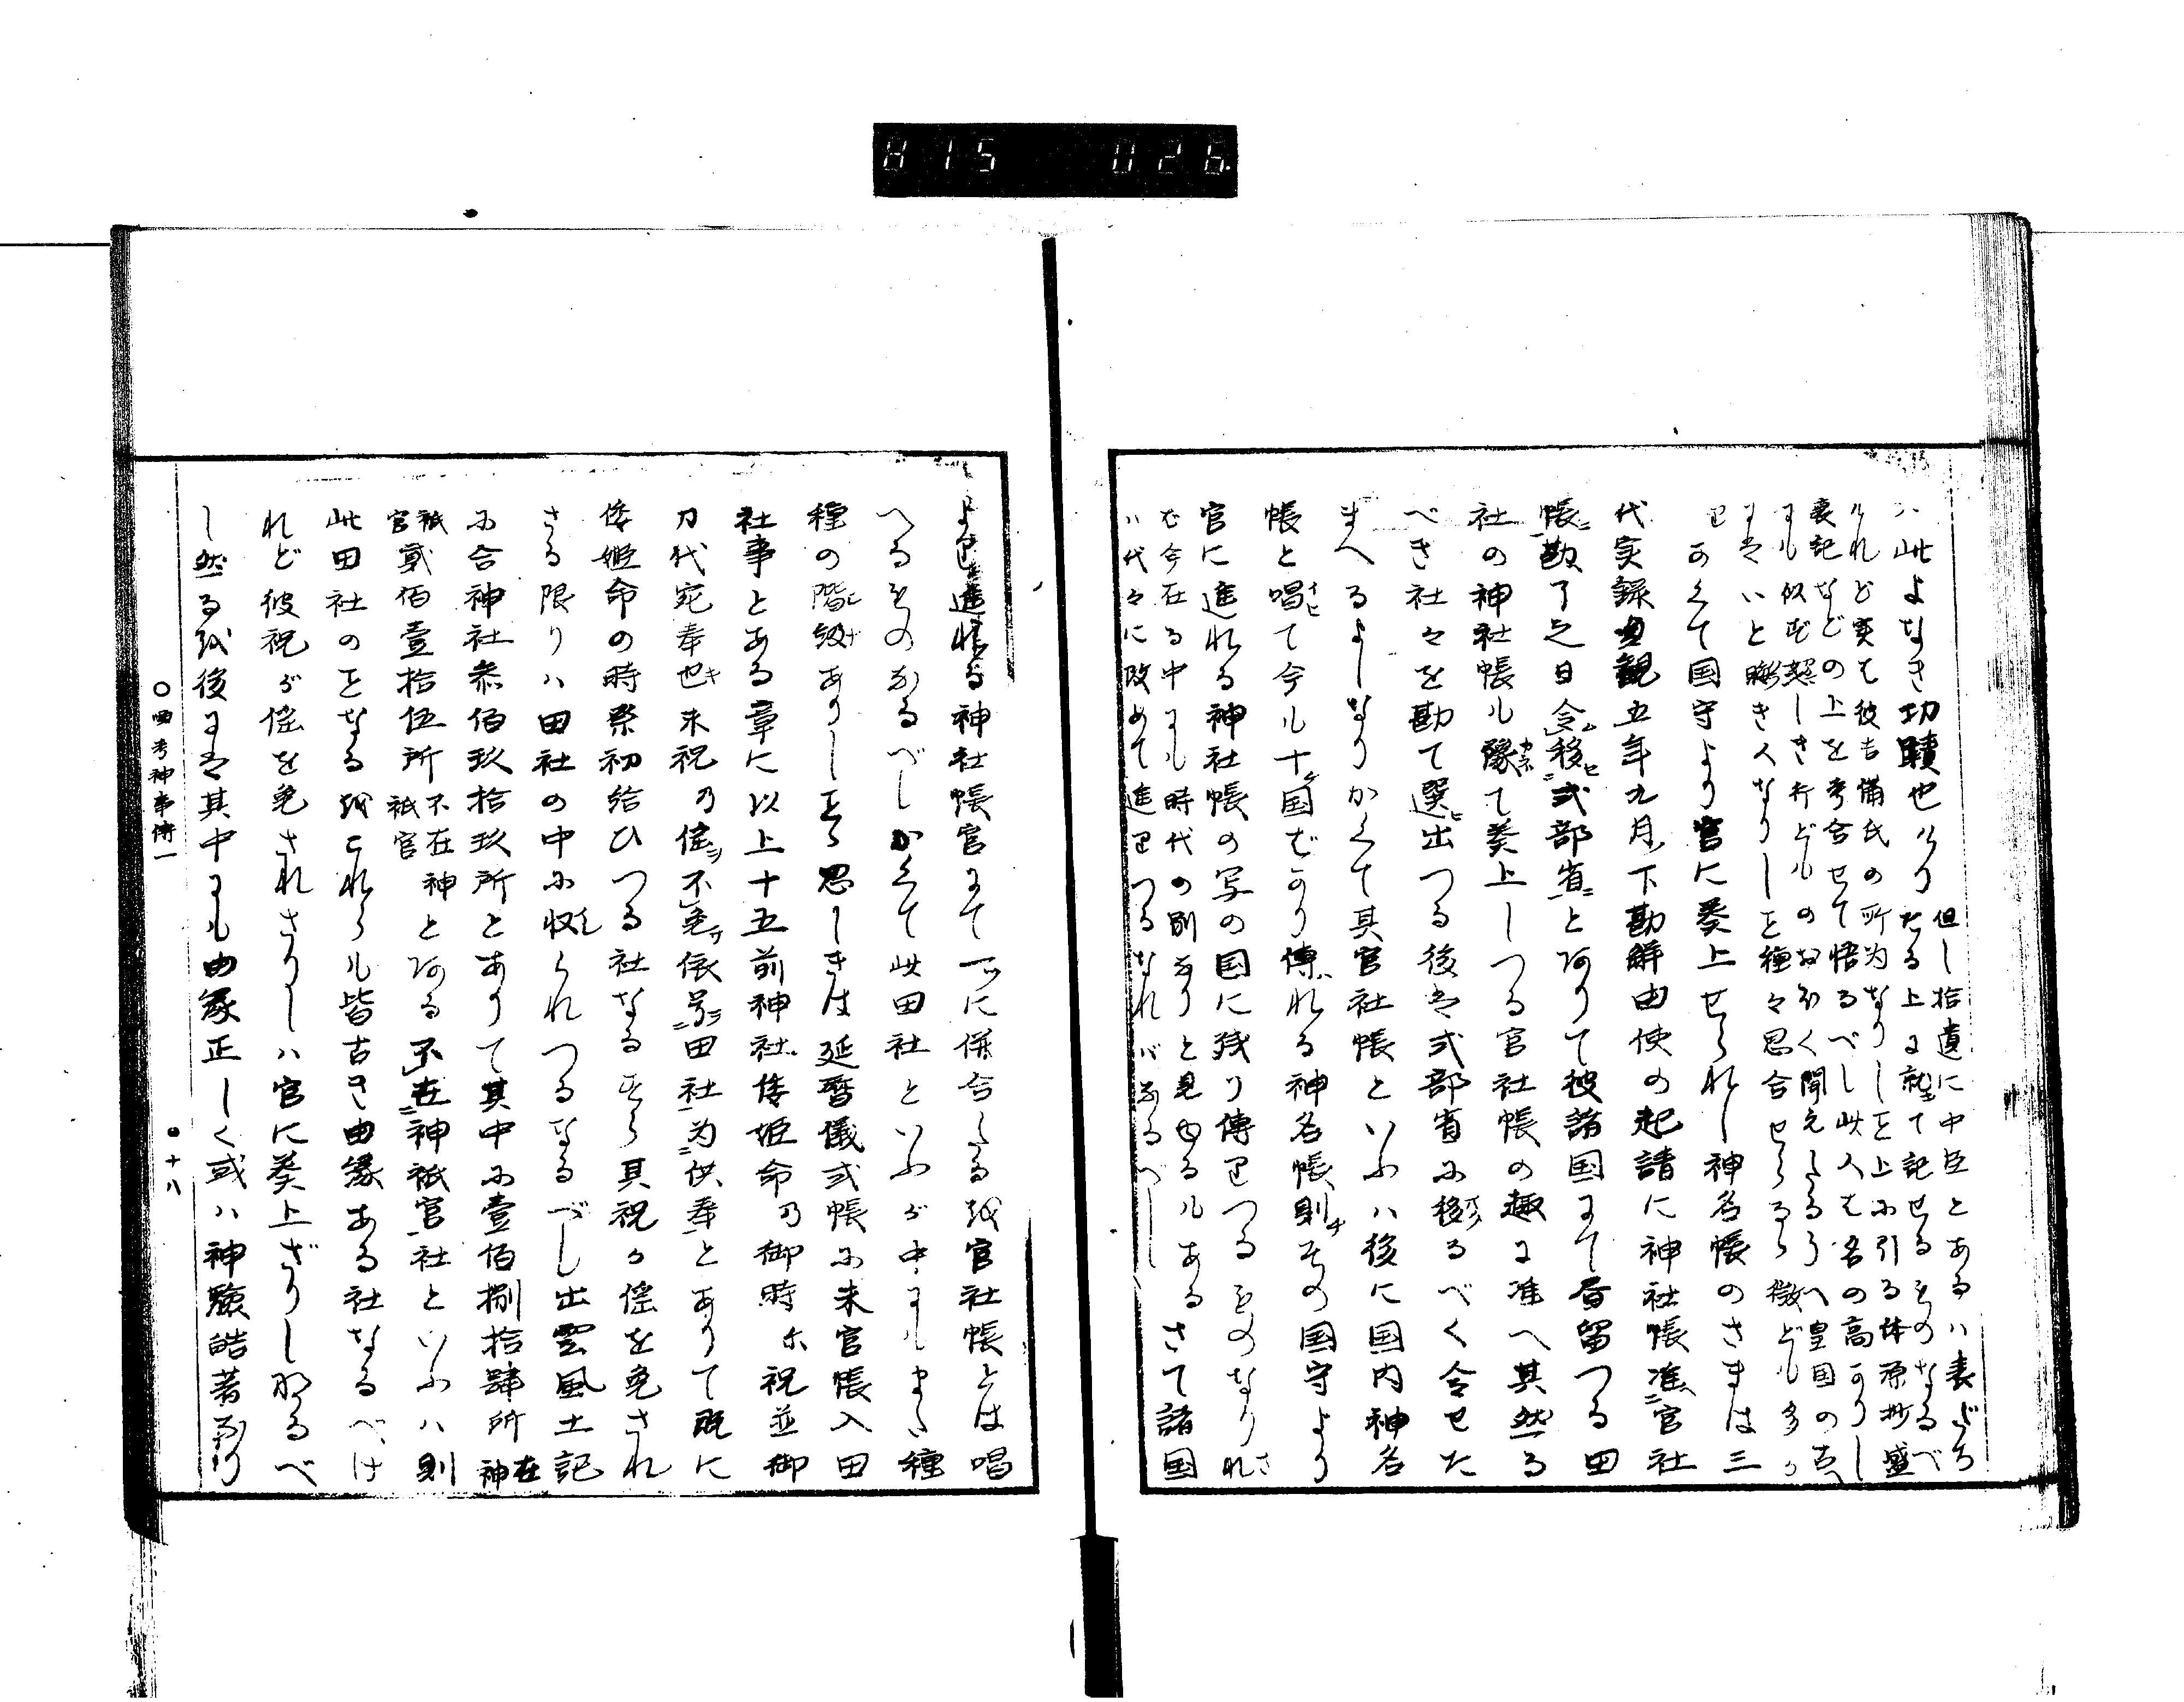 815 026
ハ此よなき功蹟也けり 但し拾遺に中臣とあるハ表だち
たる上に就て記せるものなるべ
けれど実は彼吉備氏の所為なりしを上に引る体源抄盛
衰記などの上を考合せて悟るべし此人は名の高かりし
にも似ず契しき行どものおほく聞えたるうへ皇国の古へ
にはいと驕き人なりしを種々思合せらるる徴ども多か
り
かくて国守より官に奏上せられし神名帳のさまは三
代実録貞観五年九月ノ下勘解由使の起請に神社帳准官社
帳勘了之日令移式部省とありて彼諸国にて留つる田
社の神社帳ル豫て奏上しつる官社帳の趣に准へ其然る
べき社々を勘て選出つる後は式部省に移るべく令せた
まへるよしなりかくて其官社帳といふハ後に国内神名
帳と唱て今ル十国ばかり傳れる神名帳則その国守より
官に進れる神社帳の写の国に残り傳はつるものなりさ
れ
ど今在る中にも時代の別ありと見ゆるルある
ハ代々に改めて進はつるなればなるべし さて諸国
より進れる神社帳官にて一ツに併合たる後官社帳とは唱
へるものなるべしかくて此田社といふが中にもまた種
種の階級ありしをら思しきは延暦儀式帳に未官帳入田
社事とある章に以上十五前神社倭姫命乃御時尓祝並御
刀代宛奉也未祝乃傜不免依号田社為供奉とありて既に
倭姫命の時祭初給ひつる社なるをら其祝の傜を免され
ざる限りハ田社の中に収られつるなるべし出雲風土記
に合神社参佰玖拾玖所とありて其中に壹佰捌拾肆所 在神
祇官 貳佰壹拾伍所 不在神祇官 とある不在神祇官社といふハ則
此田社のことなるをこれらル皆古き由縁ある社なるべけ
れど彼祝が傜を免されざりしハ官に奏上ざりしなるべ
し然るを後には其中にも由縁正しく或ハ神驗皓著
〇四考神事傳一
●十八